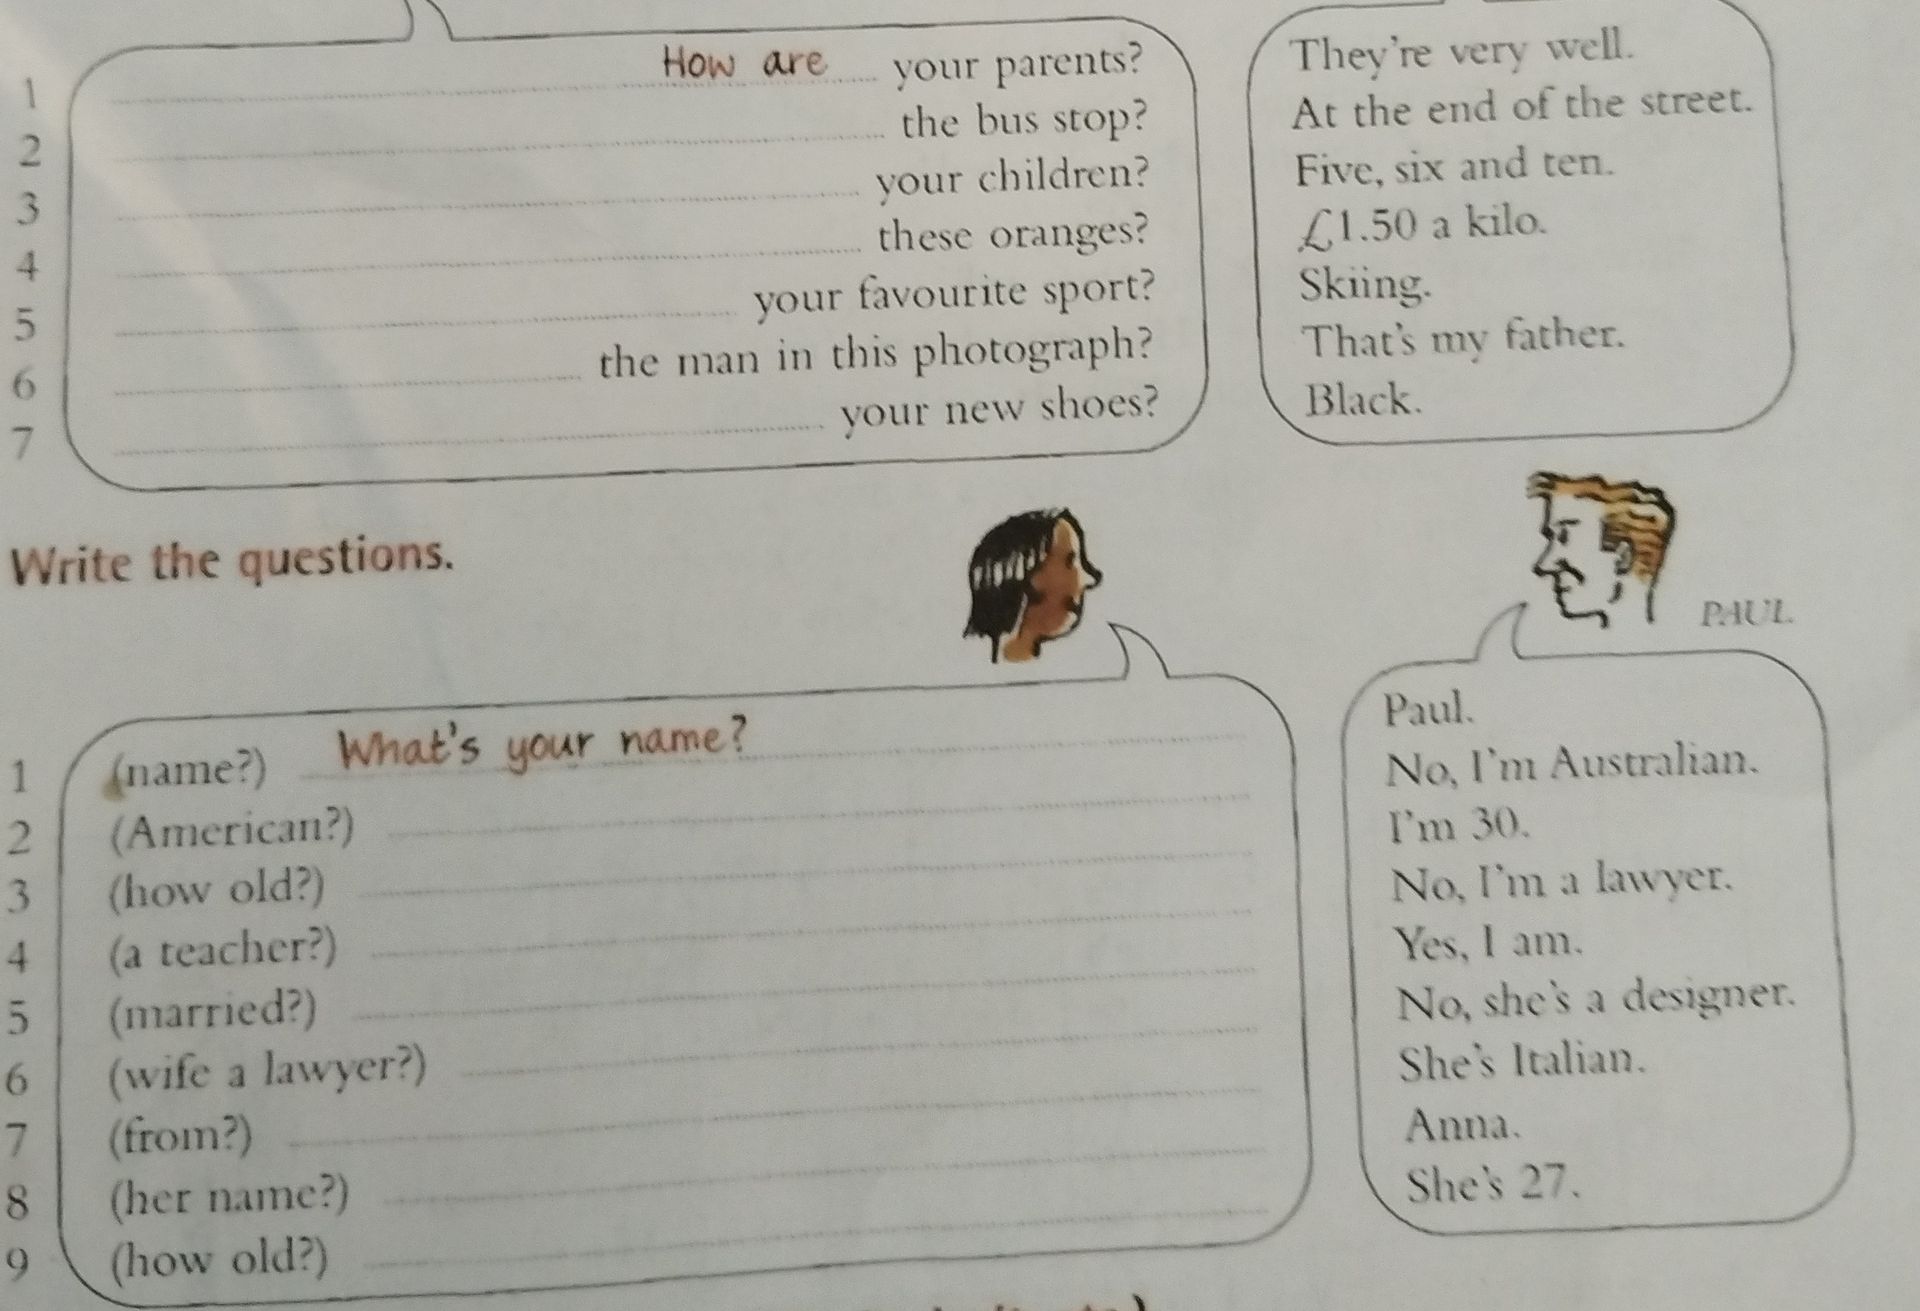 1 How are your parents? They're very well.
2 the bus stop? At the end of the street.
3 your children? Five, six and ten.
4 these oranges? £1.50 a kilo.
5 your favourite sport? Skiing.
6 the man in this photograph? That's my father.
7 your new shoes? Black.
Write the questions.
PAUL
1 (name?) What's your name? Paul.
2 (American?) No, I'm Australian.
3 (how old?) I'm 30.
4 (a teacher?) No, I'm a lawyer.
5 (married?) Yes, I am.
6 (wife a lawyer?) No, she's a designer.
7 (from?) She's Italian.
8 (her name?) Anna.
9 (how old?) She's 27.